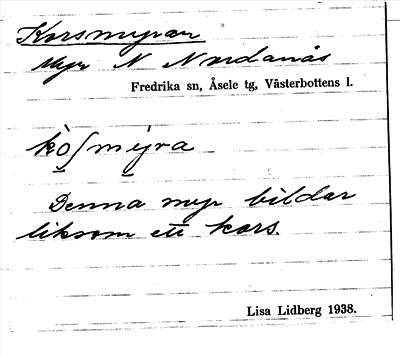 Korsmyran
Myr N Nordanås
Fredrika sn, Åsele tg, Västerbottens l.
kò̬ʃmý̬ra
Denna myr bildar
liksom ett kors.
Lisa Lidberg 1938.